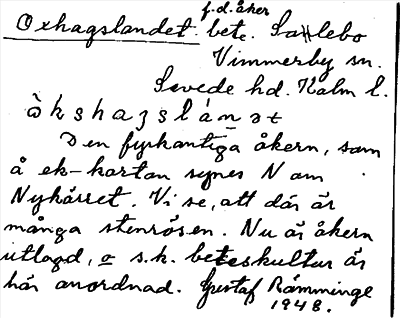 f.d. åker
Oxhagslandet. bete. Sallebo
Vimmerby sn.
Sevede hd. Kalm l.
Den fyrkantiga åkern, som
å ek-kartan synes N om
Nykärret. Vi se, att där är
många stenrösen. Nu är åkern
utlagd, o s.k. beteskultur är
här anordnad. Gustaf Rämminge
1948.